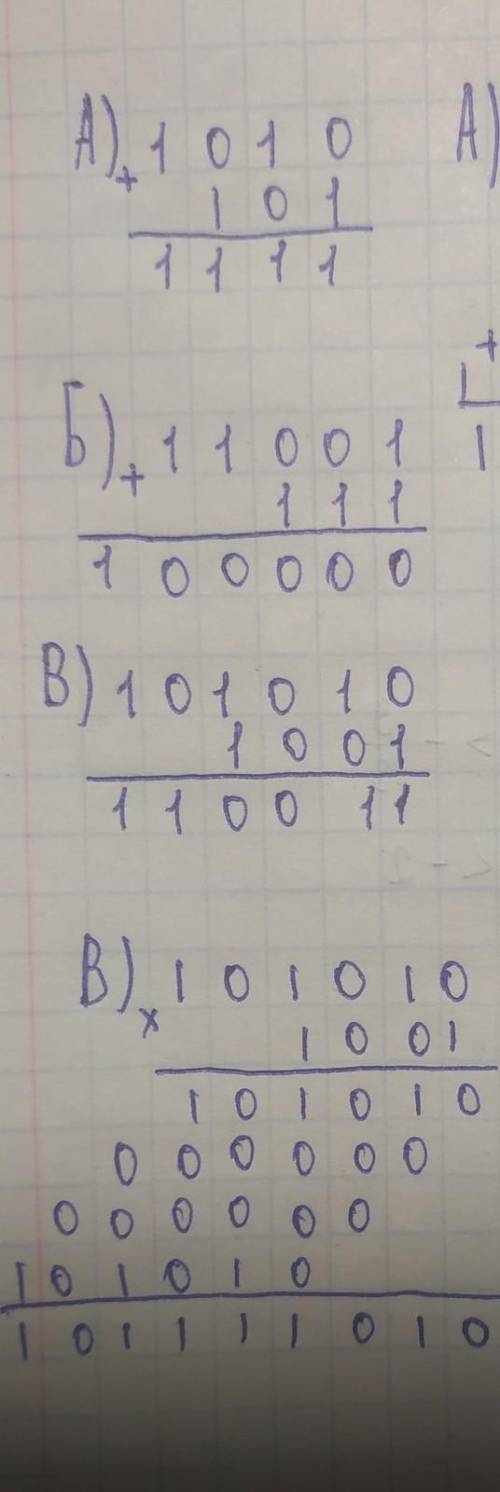 А) + 1 0 1 0
1 0 1
1 1 1 1
Б) + 1 1 0 0 1
1 1 1
1 0 0 0 0 0
В) 1 0 1 0 1 0
1 0 0 1
1 1 0 0 1 1
В) x 1 0 1 0 1 0
1 0 0 1
1 0 1 0 1 0
0 0 0 0 0 0
0 0 0 0 0 0
1 0 1 0 1 0
1 0 1 1 1 1 0 1 0
А)
+
1
1